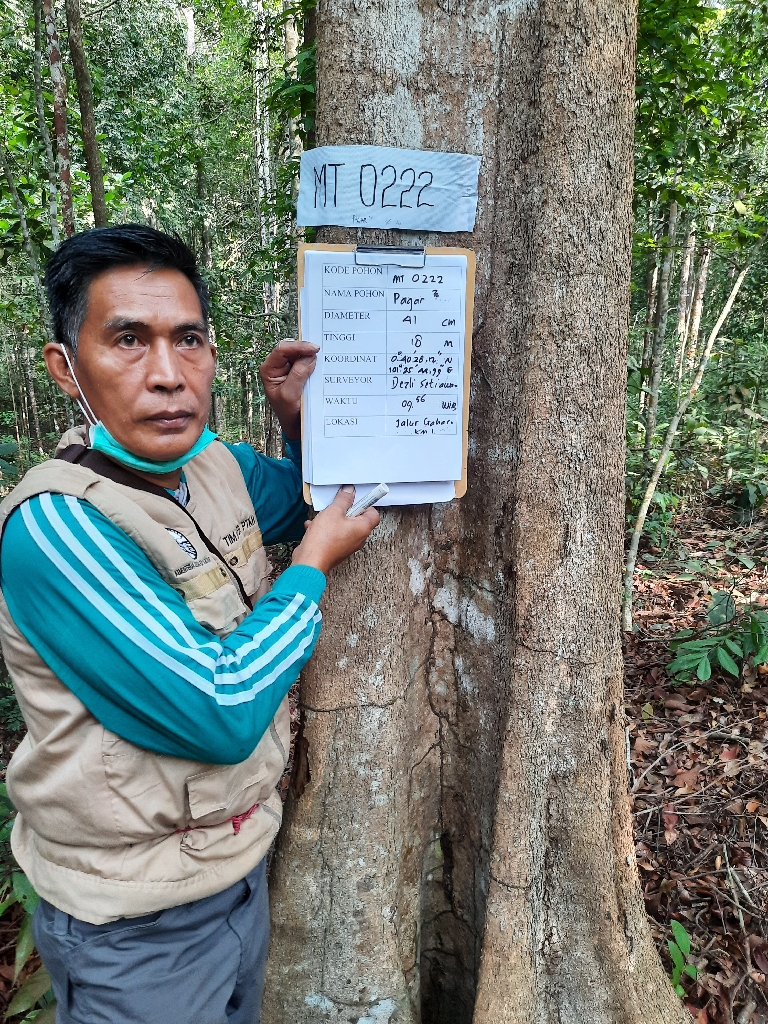 MT 0222
KODE POHON MT 0222
NAMA POHON Pagar
DIAMETER 41 cm
TINGGI 18 M
KOORDINAT 0°40'28,12" N
101°25'44,99" E
SURVEYOR Dezli Setiawan
WAKTU 09.56 WIB
LOKASI Jalur Gaharu
KM 1
TIM